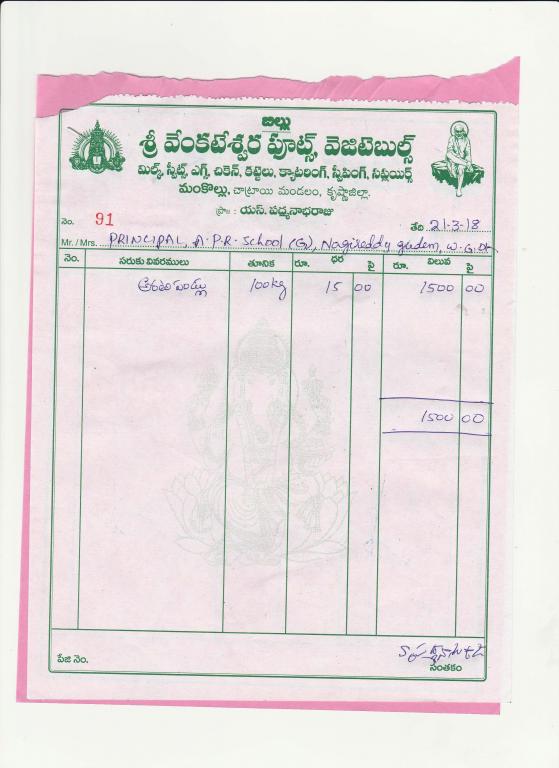 బిల్లు
శ్రీ వేంకటేశ్వర ఫ్రూట్స్, వెజిటెబుల్స్
మిల్క్, స్వీట్స్, ఎగ్స్, చికెన్, కట్టెలు, క్యాటరింగ్, స్వీపింగ్, సప్లయిర్స్
మంకొల్లు, చాట్రాయి మండలం, కృష్ణాజిల్లా.
ప్రొ : యస్. పద్మనాభరాజు
నెం. 91 తేది 21-3-18
Mr. / Mrs. PRINCIPAL, A.P.R. School (G), Nagireddy gudem, W.G.Dt
నెం. సరుకు వివరములు తూనిక రూ. ధర పై రూ. విలువ పై
అరటి పండ్లు 100kg 15 00 1500 00
1500 00
పేజి నెం. సంతకం